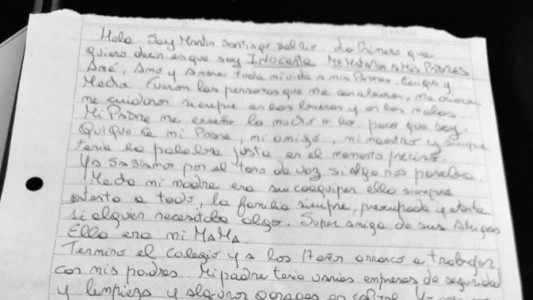 Hola. Soy Martin Santiago del Rio. Lo Primero que
quiero decir es que soy INOCENTE. ME MATARON A MIS PADRES
Amé, Amo y Amare toda mi vida a mis Padres. Quique y
Meche fueron las personas que me
me cuidaron siempre en las buenas y en las malas.
Mi Padre me enseño lo mucho o lo poco que soy.
Quique fue mi Padre, mi amigo, mi maestro y siempre
tenia la palabra justa en el momento preciso.
Ya sabiamos por el tono de voz si algo nos pasaba.
Meche mi madre era su coequiper ella siempre
atenta a todo, la familia siempre, preocupada y atenta
si alguien necesitaba algo. Super amiga de sus Amigas
Ella era mi MAMA.
Termino el colegio y a los 17 años arranco a trabajar
con mis padres. Mi padre tenia varias empresas de seguridad
y limpieza y algunos garages en